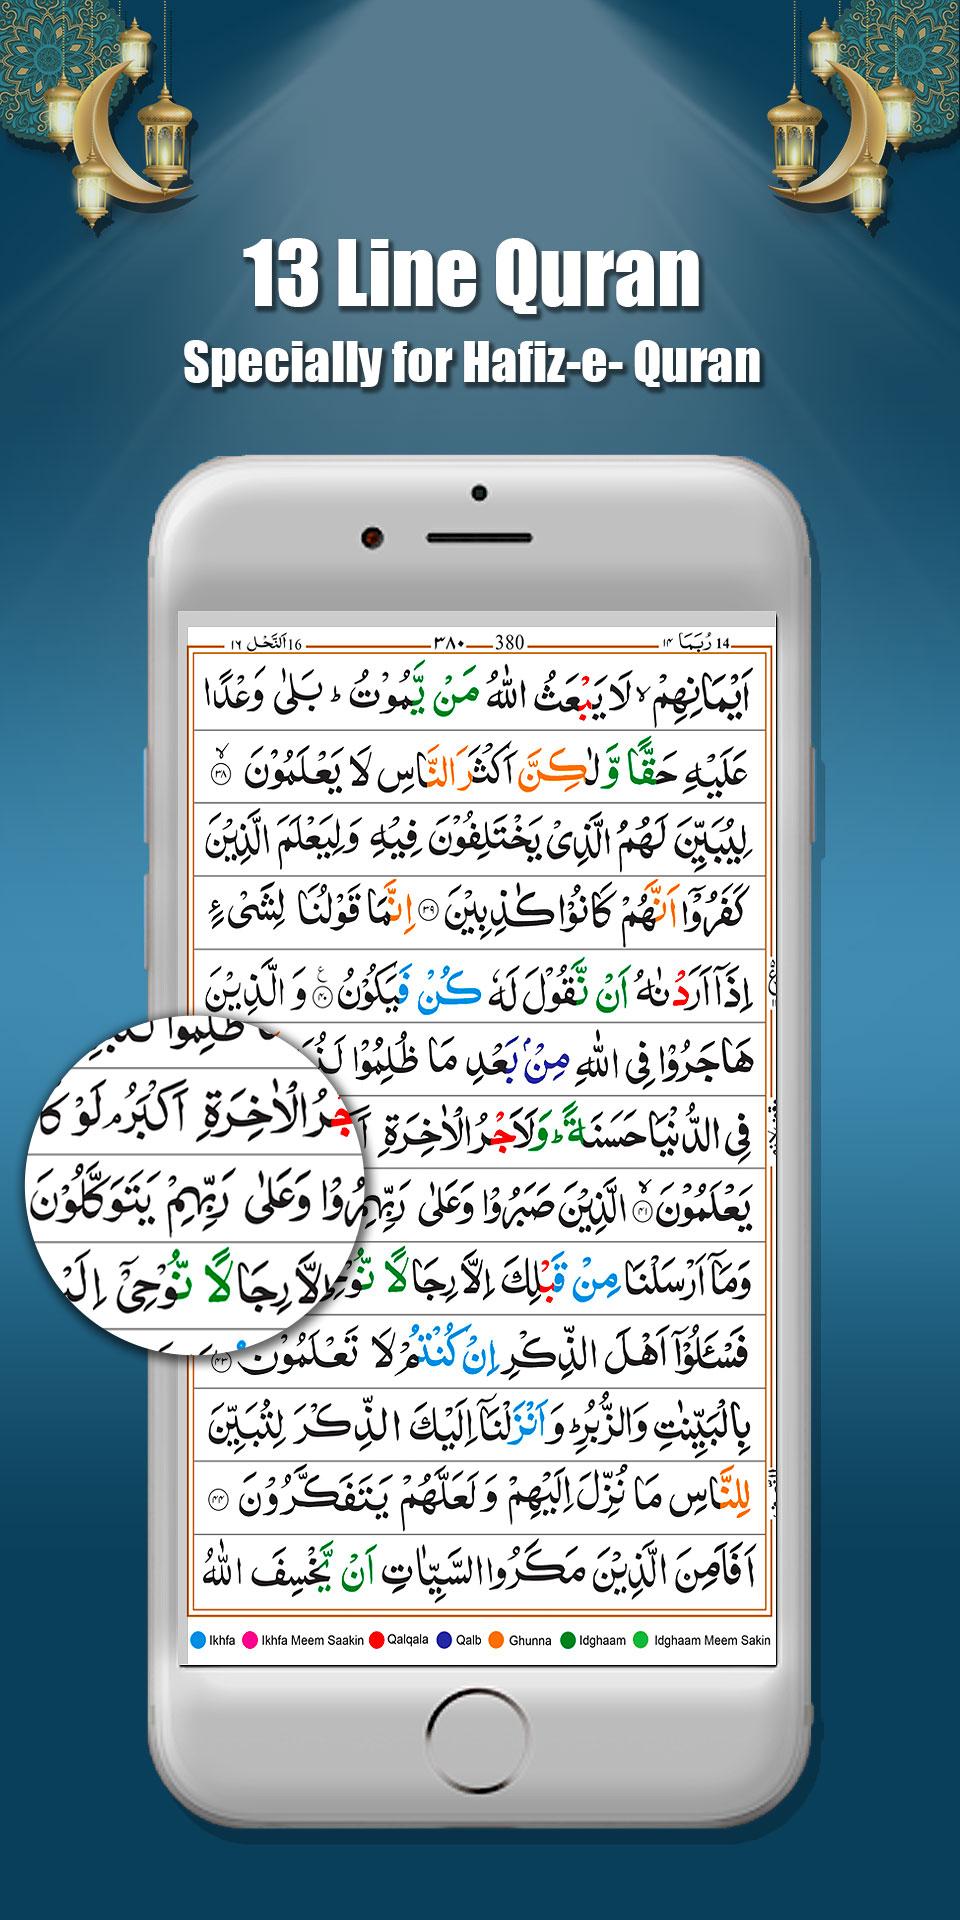 13 Line Quran
Specially for Hafiz-e- Quran
14 رُبَمَا ١٤ 380 ٣٨٠ 16 اَلنَّحْل ١٦
اَيْمَانِهِمْ ۙ لَا يَبْعَثُ اللّٰهُ مَنْ يَّمُوْتُ ؕ بَلٰى وَعْدًا
عَلَيْهِ حَقًّا وَّلٰكِنَّ اَكْثَرَ النَّاسِ لَا يَعْلَمُوْنَ ۙ ٣٨
لِيُبَيِّنَ لَهُمُ الَّذِىْ يَخْتَلِفُوْنَ فِيْهِ وَلِيَعْلَمَ الَّذِيْنَ
كَفَرُوْۤا اَنَّهُمْ كَانُوْا كٰذِبِيْنَ ٣٩ اِنَّمَا قَوْلُنَا لِشَىْءٍ
اِذَاۤ اَرَدْنٰهُ اَنْ نَّقُوْلَ لَهٗ كُنْ فَيَكُوْنُ ٤٠ ع وَ الَّذِيْنَ
هَاجَرُوْا فِى اللّٰهِ مِنْۢ بَعْدِ مَا ظُلِمُوْا
فِى الدُّنْيَا حَسَنَةً ؕ وَلَاَجْرُ الْاٰخِرَةِ
يَعْلَمُوْنَ ۙ ٤١ الَّذِيْنَ صَبَرُوْا وَعَلٰى رَبِّهِمْ
وَمَاۤ اَرْسَلْنَا مِنْ قَبْلِكَ اِلَّا رِجَالًا
فَسْـَٔلُوْۤا اَهْلَ الذِّكْرِ اِنْ كُنْتُمْ لَا تَعْلَمُوْنَ ۙ ٤٣
بِالْبَيِّنٰتِ وَالزُّبُرِ ؕ وَاَنْزَلْنَاۤ اِلَيْكَ الذِّكْرَ لِتُبَيِّنَ
لِلنَّاسِ مَا نُزِّلَ اِلَيْهِمْ وَلَعَلَّهُمْ يَتَفَكَّرُوْنَ ٤٤
اَفَاَمِنَ الَّذِيْنَ مَكَرُوا السَّيِّاٰتِ اَنْ يَّخْسِفَ اللّٰهُ
جْرُ الْاٰخِرَةِ اَكْبَرُ ۘ لَوْ كَا
رُوْا وَعَلٰى رَبِّهِمْ يَتَوَكَّلُوْنَ
اِلَّا رِجَالًا نُّوْحِىْۤ
Ikhfa Ikhfa Meem Saakin Qalqala Qalb Ghunna Idghaam Idghaam Meem Sakin